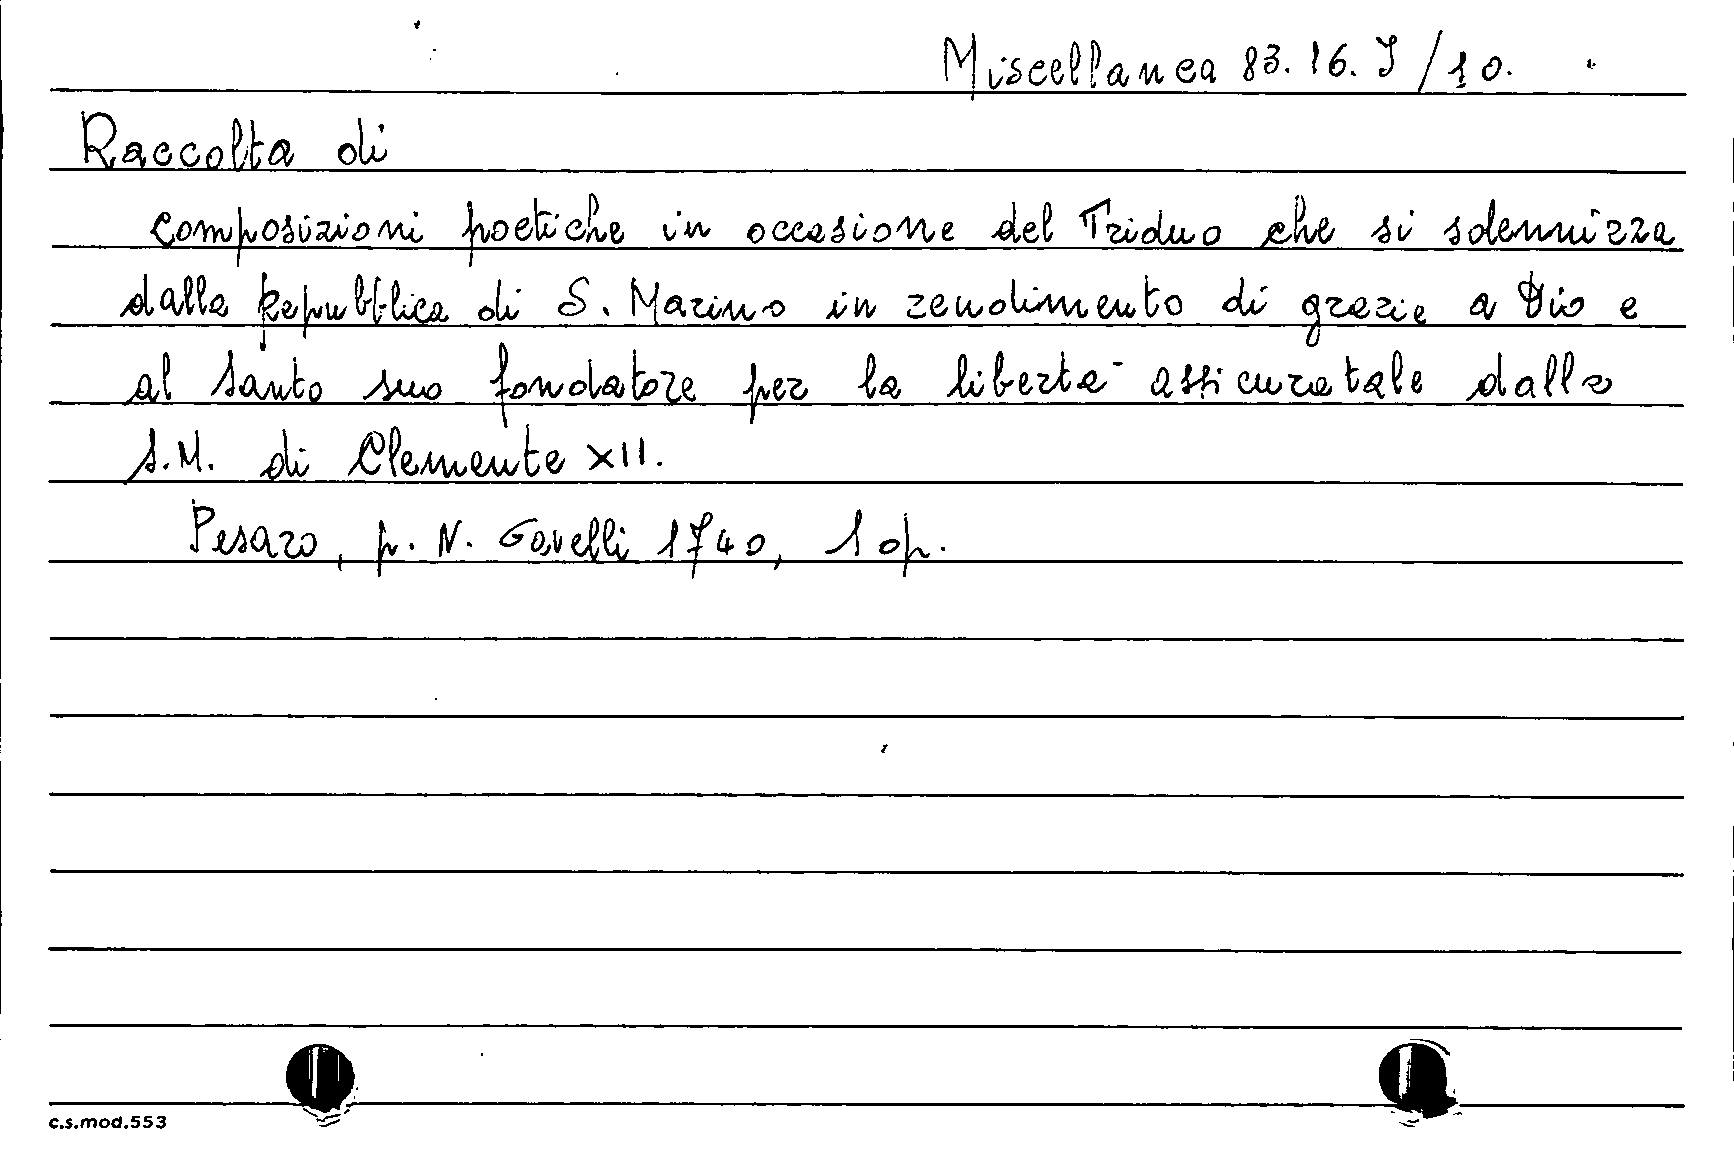 Miscellanea 83.16.J/10.
Raccolta di
composizioni poetiche in occasione del Triduo che si solennizza
dalla Repubblica di S. Marino in rendimento di grazie a Dio e
al Santo suo fondatore per la libertà assicuratale dalla
S.M. di Clemente XII.
Pesaro, p. N. Gavelli 1740, 1 op.
c.s.mod.553